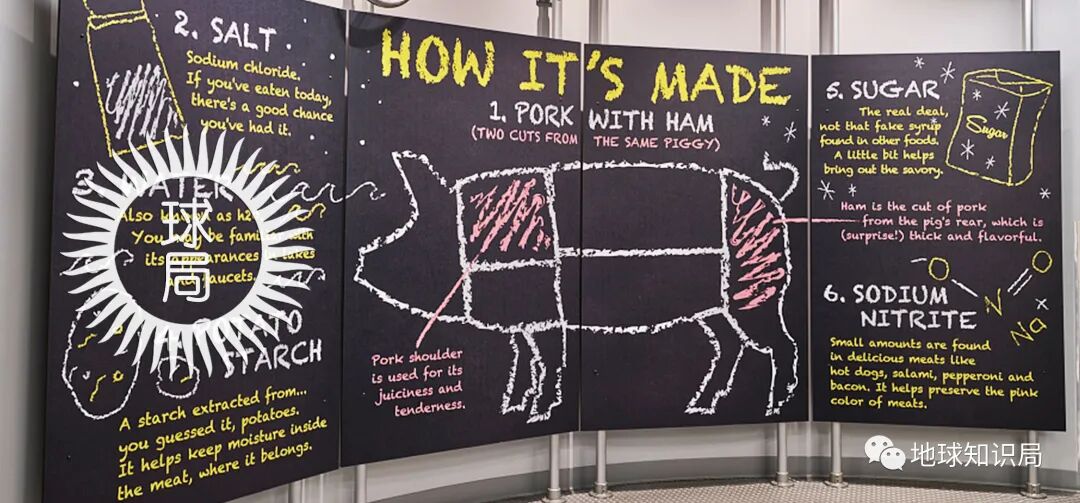 HOW IT'S MADE
1. PORK WITH HAM
(TWO CUTS FROM THE SAME PIGGY)
Pork shoulder
is used for its
juiciness and
tenderness.
Ham is the cut of pork
from the pig's rear, which is
(surprise!) thick and flavorful.
2. SALT
Sodium chloride.
If you've eaten today,
there's a good chance
you've had it.
WATER
Also known as h2
You may be
its appearances in lakes
and faucets.
POTATO
STARCH
A starch extracted from...
you guessed it, potatoes.
It helps keep moisture inside
the meat, where it belongs.
5. SUGAR
The real deal,
not that fake syrup
found in other foods.
A little bit helps
bring out the savory.
Sugar
6. SODIUM
NITRITE
Small amounts are found
in delicious meats like
hot dogs, salami, pepperoni and
bacon. It helps preserve the pink
color of meats.
O
N
O
Na
球局
地球知识局